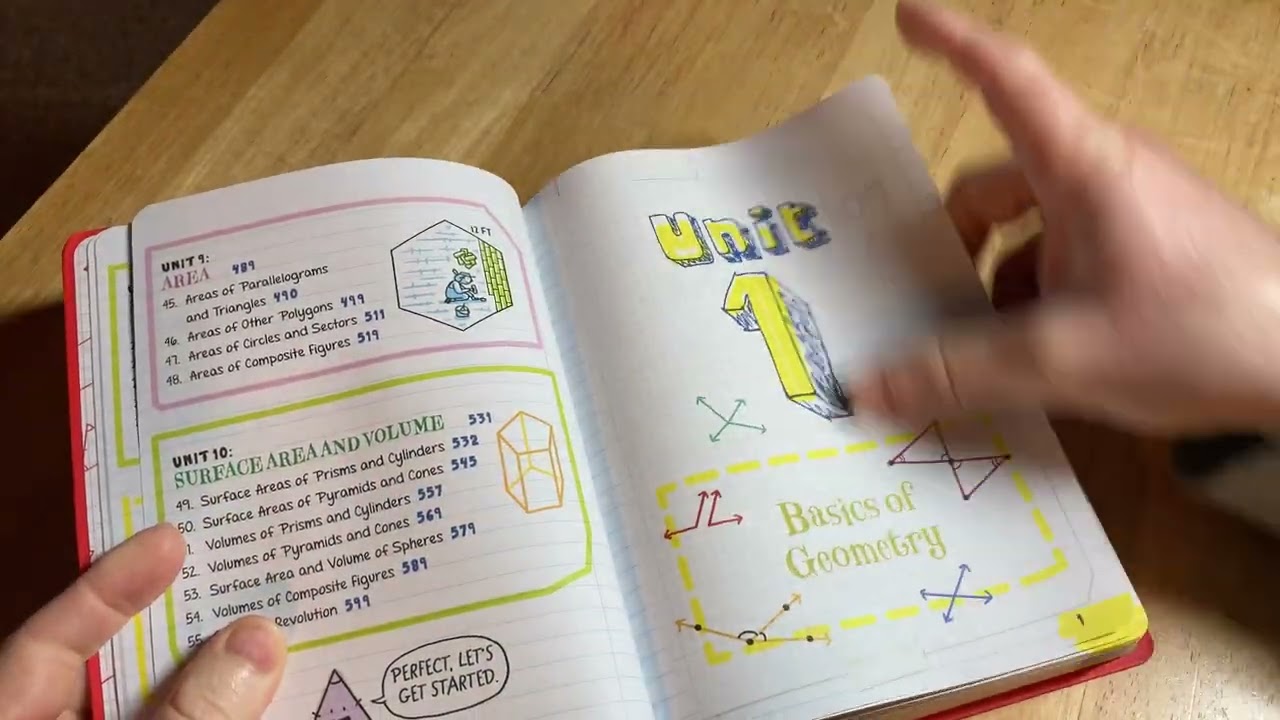 UNIT 9:
AREA 489
45. Areas of Parallelograms
and Triangles 490
46. Areas of Other Polygons 499
47. Areas of Circles and Sectors 511
48. Areas of Composite Figures 519
12 FT
UNIT 10:
SURFACE AREA AND VOLUME 531
49. Surface Areas of Prisms and Cylinders 532
50. Surface Areas of Pyramids and Cones 545
1. Volumes of Prisms and Cylinders 557
52. Volumes of Pyramids and Cones 569
53. Surface Area and Volume of Spheres 579
54. Volumes of Composite Figures 589
55. Revolution 599
PERFECT, LET'S
GET STARTED.
Unit
1
Basics of
Geometry
1